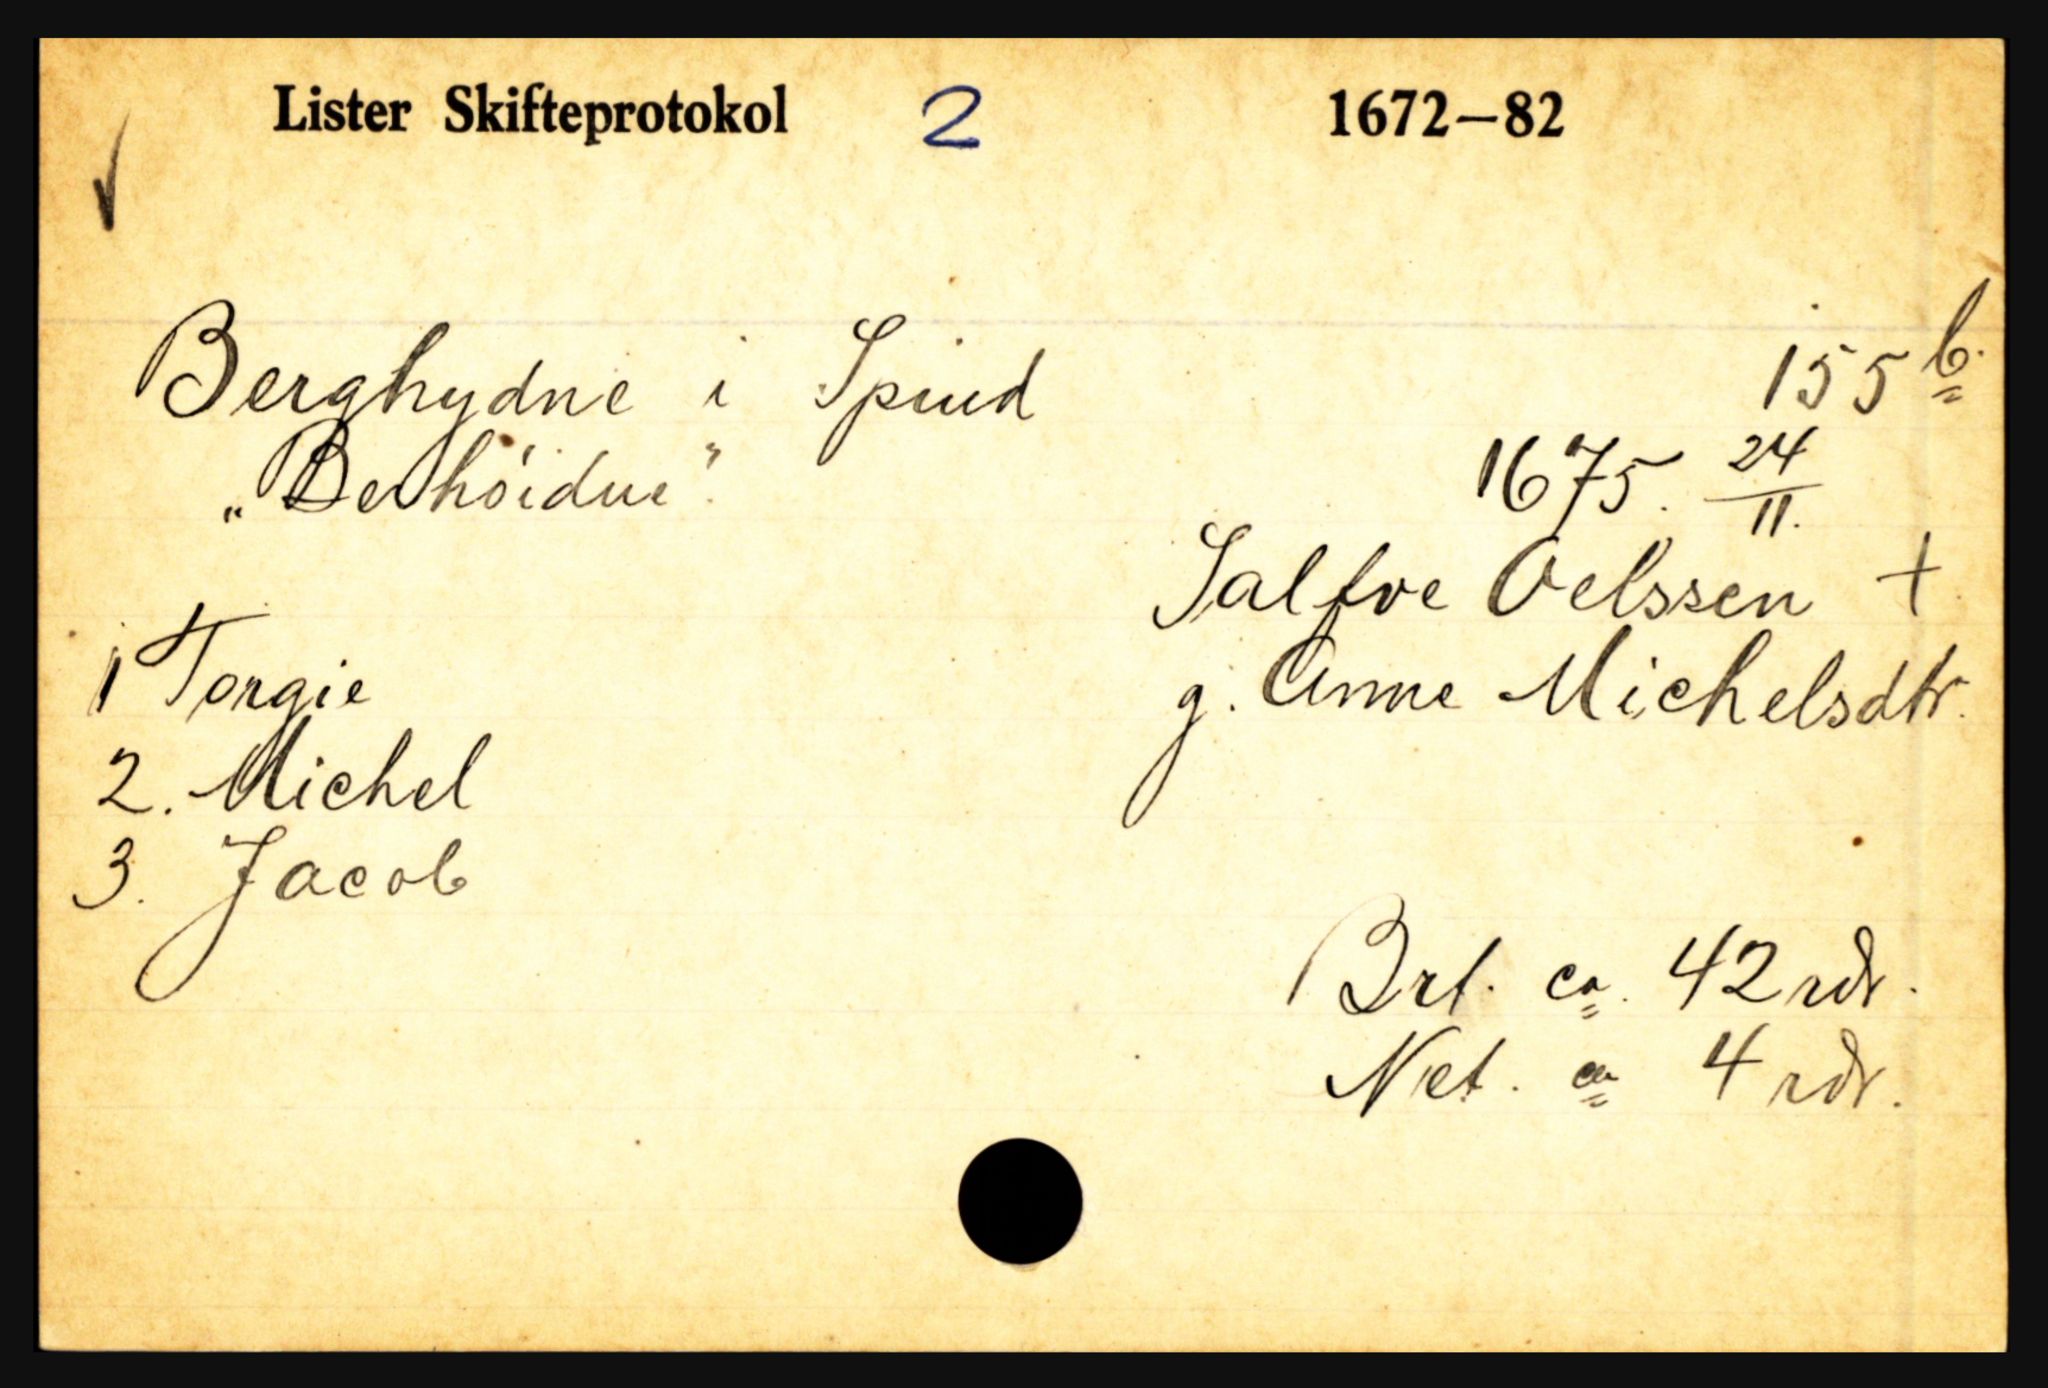 Lister Skifteprotokol 2 1672–82
Berghydne i Spind 155 b.
„Berhöidne". 1675. 24/11.
Salfve Oelssen +
g. Anne Michelsdtr.
1 Torgie
2. Michel
3. Jacob
Brt. ca. 42 rdr.
Net. ca 4 rdr.